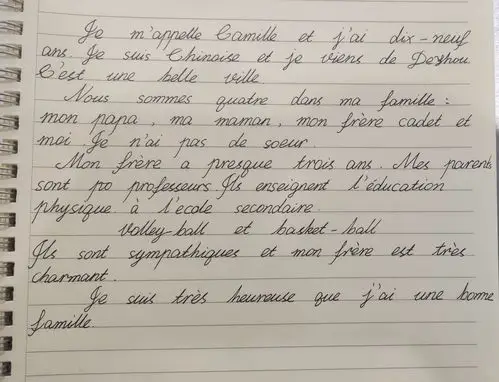 Je m'appelle Camille et j'ai dix-neuf
ans. Je suis Chinoise et je viens de Dezhou.
C'est une belle ville
Nous sommes quatre dans ma famille :
mon papa, ma maman, mon frère cadet et
moi. Je n'ai pas de soeur.
Mon frère a presque trois ans. Mes parents
sont pro professeurs. Ils enseignent l'éducation
physique. à l'école secondaire.
Volley-ball et basket-ball
Ils sont sympathiques et mon frère est très
charmant.
Je suis très heureuse que j'ai une bonne
famille.